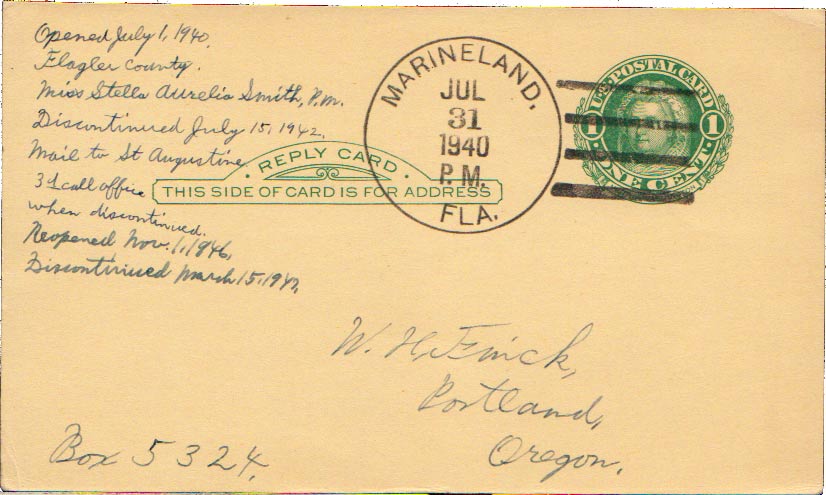 Opened July 1, 1940.
Flagler County.
Miss Stella Aurelia Smith, P.m.
Discontinued July 15, 1942.
Mail to St Augustine
call office
when discontinued.
Reopened Nov. 1, 1946,
Discontinued March 15, 1947,
· REPLY CARD ·
THIS SIDE OF CARD IS FOR ADDRESS
MARINELAND,
JUL
31
1940
P.M.
FLA.
U.S. POSTAL CARD
1 1
· ONE CENT ·
W. H. Finck,
Portland,
Oregon.
Box 5324.